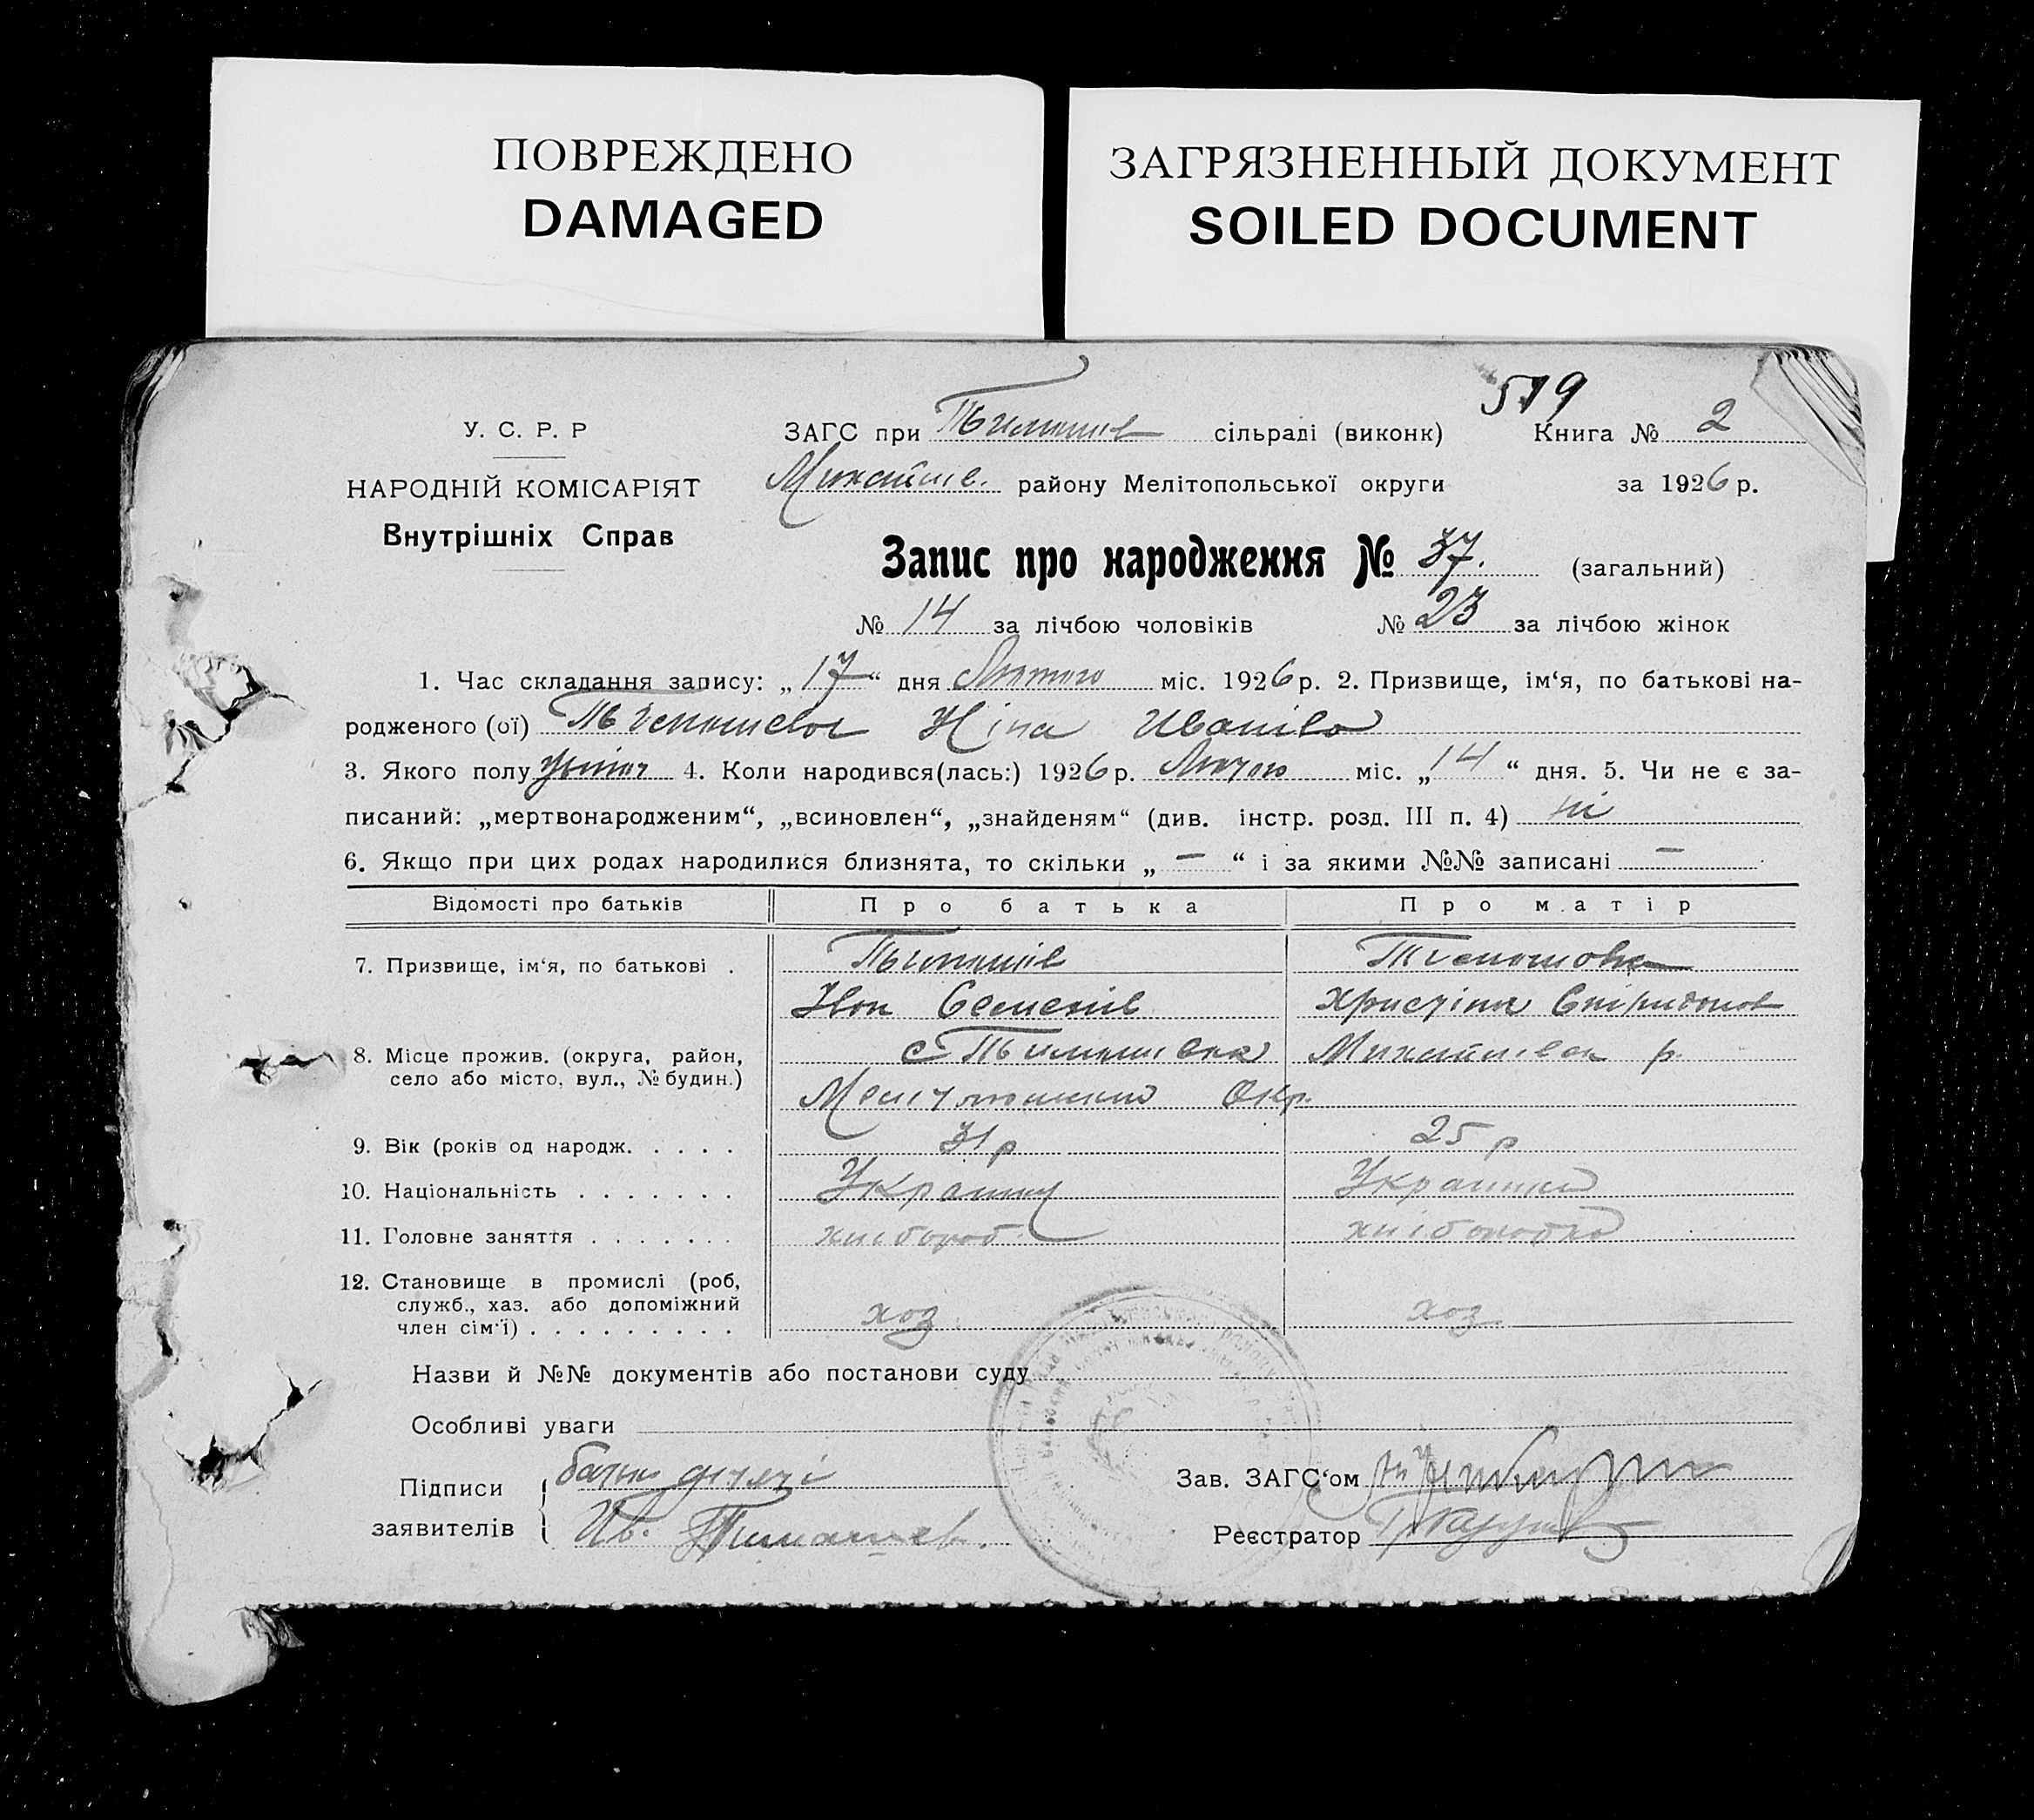 ПОВРЕЖДЕНО
DAMAGED
ЗАГРЯЗНЕННЫЙ ДОКУМЕНТ
SOILED DOCUMENT
519
У. С. Р. Р
НАРОДНІЙ КОМІСАРІЯТ
Внутрішніх Справ
ЗАГС при Тимошів сільраді (виконк) Книга № 2
Михайлів. району Мелітопольської округи за 1926 р.
Запис про народження № 37. (загальний)
№ 14 за лічбою чоловіків № 23 за лічбою жінок
1. Час складання запису: „17“ дня Лютого міс. 1926 р. 2. Призвище, ім‘я, по батькові на-
родженого (ої) Ніна Іванівна
3. Якого полу жіноч 4. Коли народився(лась:) 1926 р. Лютого міс. „14“ дня. 5. Чи не є за-
писаний: „мертвонародженим“, „всиновлен“, „знайденям“ (див. інстр. розд. III п. 4) ні
6. Якщо при цих родах народилися близнята, то скільки „ — “ і за якими №№ записані —
Відомості про батьків Про батька Про матір
7. Призвище, ім‘я, по батькові . Тимошів
Іван Семенів Христіна Спіридонов
8. Місце прожив. (округа, район, с Тимошівка Михайлівськ р.
село або місто, вул., № будин.)
Окр.
9. Вік (років од народж. . . . . 31 р 25 р
10. Національність . . . . . . . Українц Українка
11. Головне заняття . . . . . . . хлібороб хліборобка
12. Становище в промислі (роб,
служб., хаз. або допоміжний
член сім‘ї) . . . . . . . . . хоз хоз
Назви й №№ документів або постанови суду
Особливі уваги
Підписи батько дитяті
заявителів Ив. Тимошев.
Зав. ЗАГС‘ом
Реєстратор